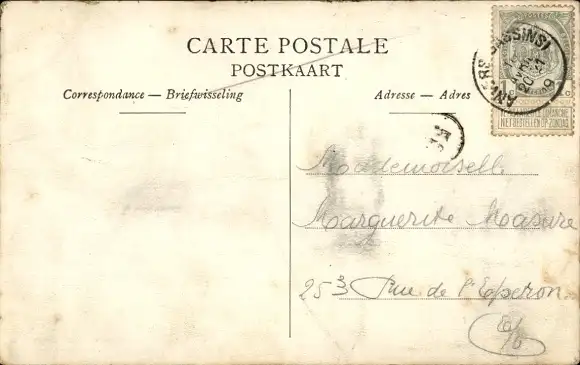 CARTE POSTALE
POSTKAART
Correspondance — Briefwisseling
Adresse — Adres
ANVERS (BASSINS)
NE PAS LIVRER LE DIMANCHE
NIET BESTELLEN OP ZONDAG
Mademoiselle
Marguerite Masure
253 Rue de l'Eperon
E/V